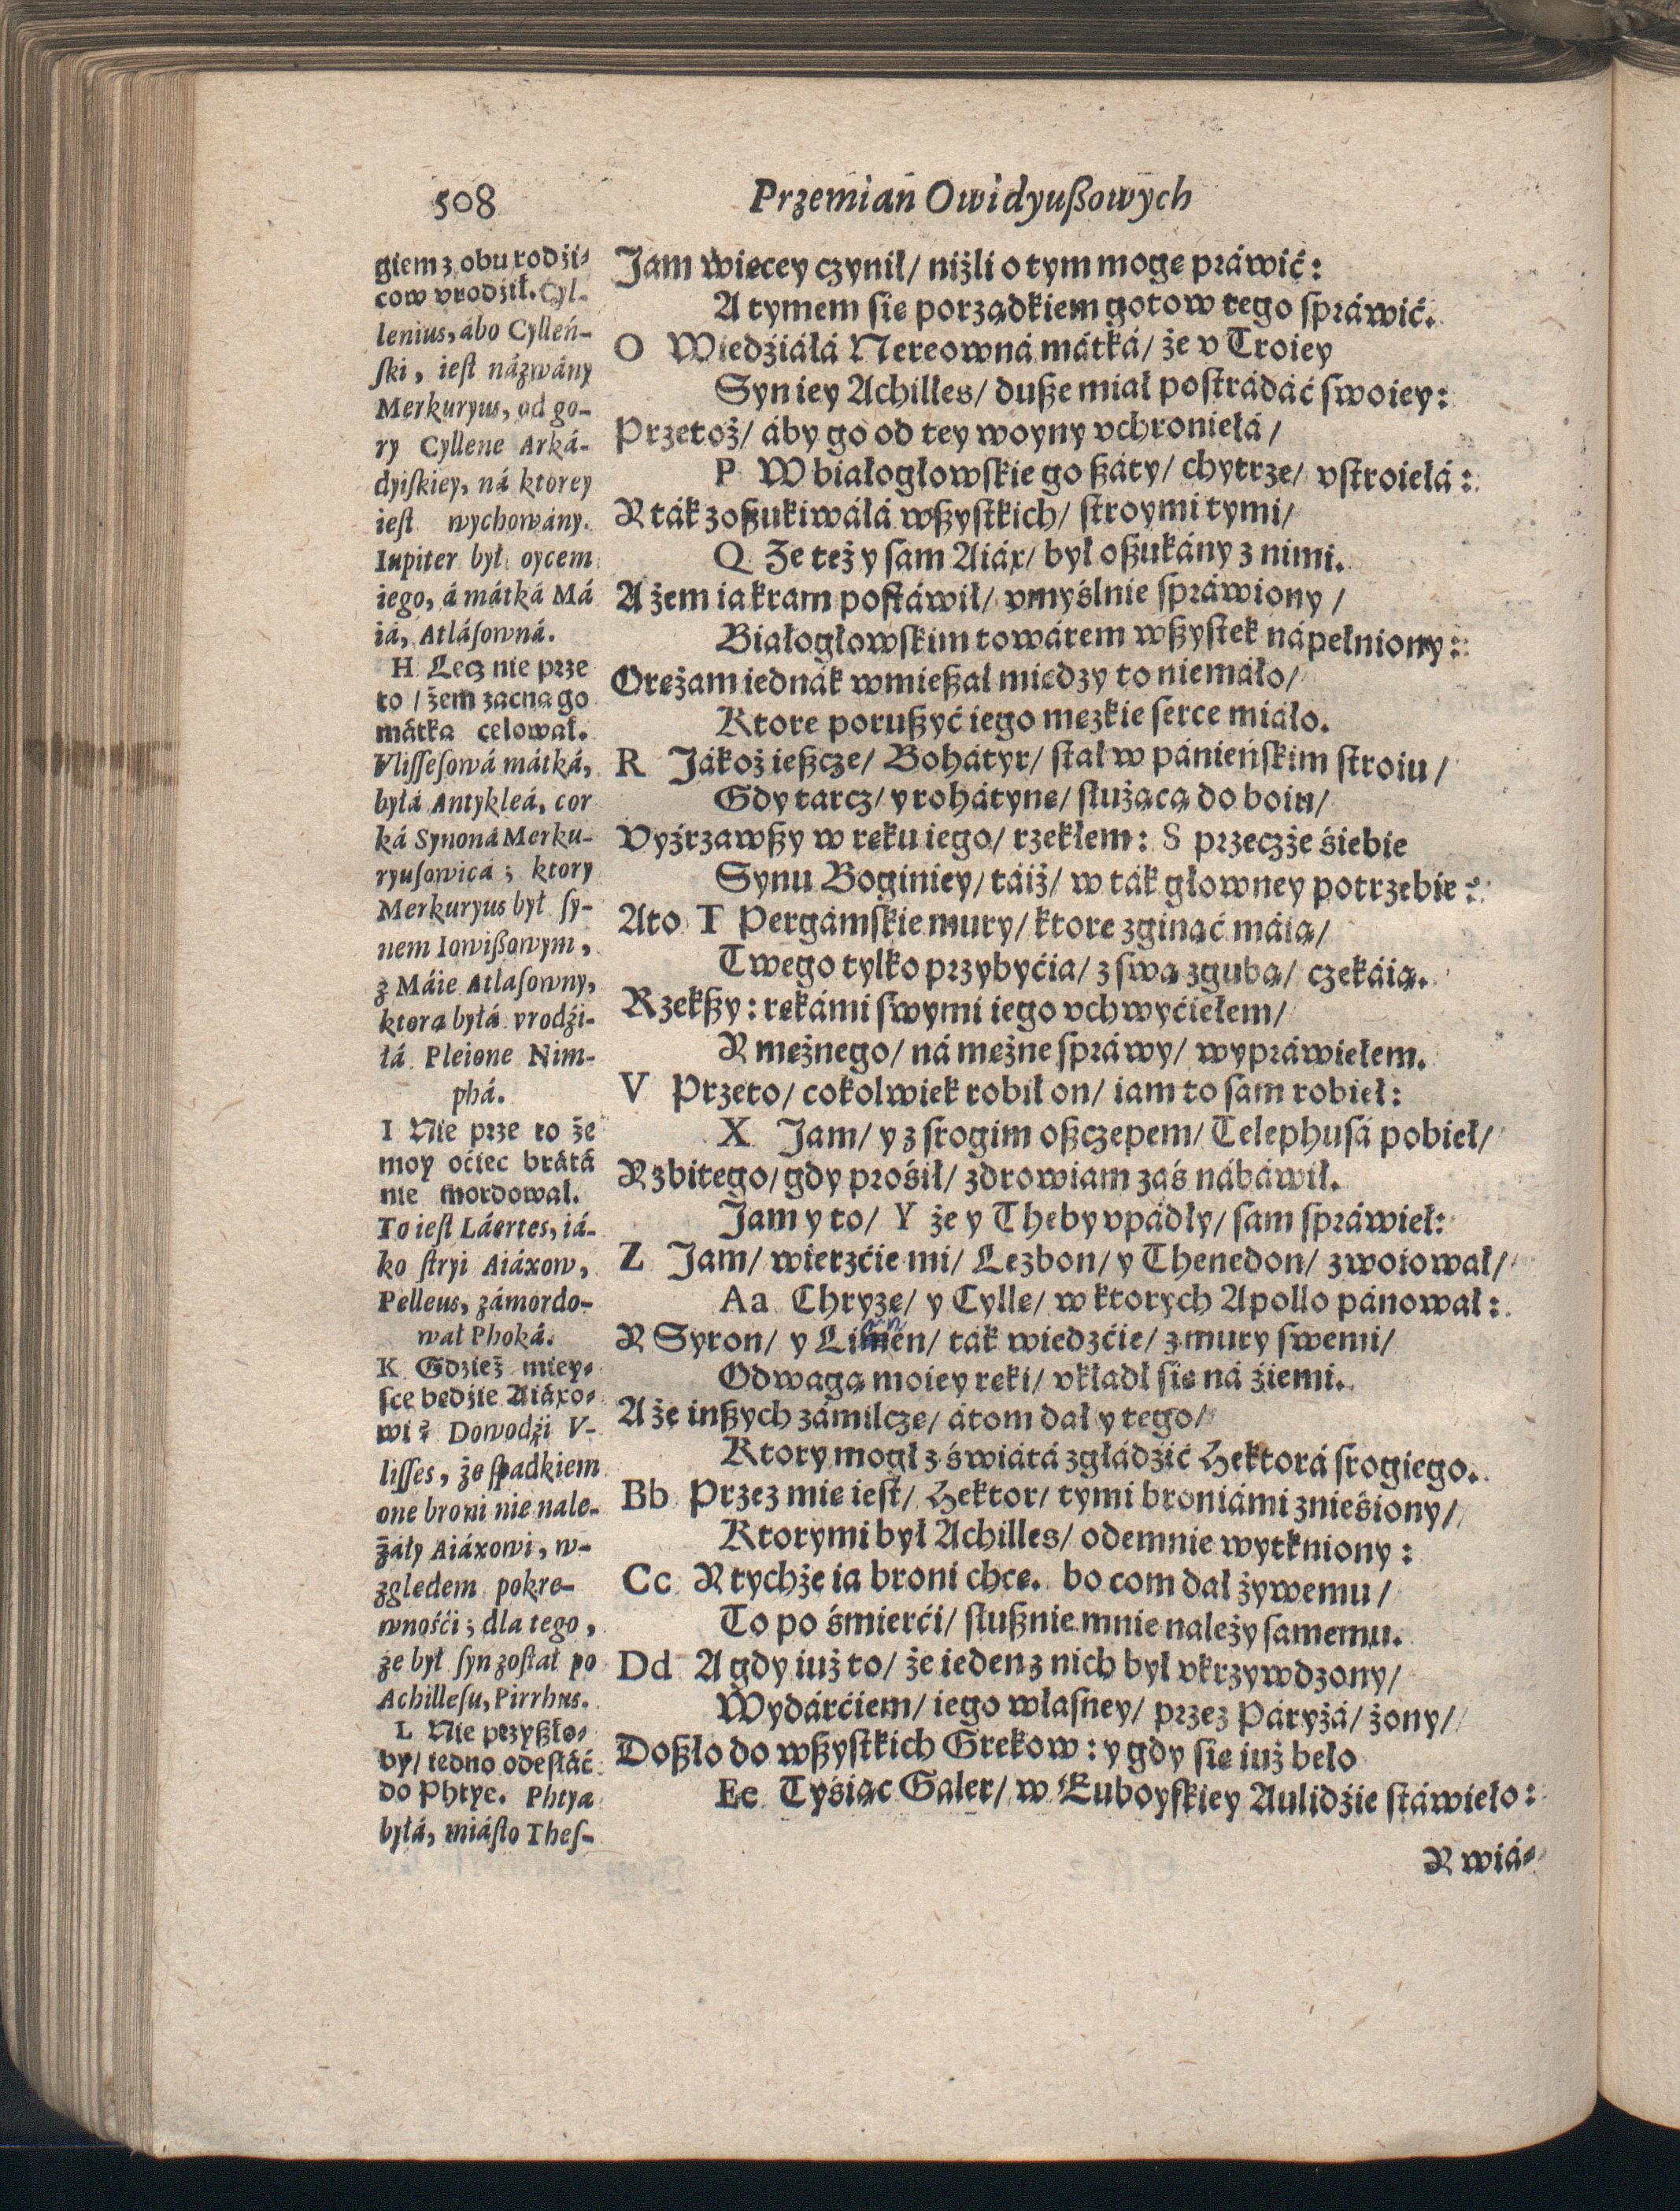 508
Przemian Owidyußowych
giem z obu rodźi⸗
cow vrodźił. Cyl-
lenius, ábo Cylleń-
ſki, ieſt názwány
Merkuryus, od go-
ry Cyllene Arká-
dyiſkiey, ná ktorey
ieſt wychowány.
Iupiter był oycem
iego, á mátká Má
iá, Atláſowná.
H Lecz nie prze
to / żem zacną go
mátka celował.
Vliſſeſowá mátká,
byłá Antykleá, cor
ká Synoná Merku-
ryuſowicá; ktory
Merkuryus był ſy-
nem Iowißowym,
z Máie Atlaſowny,
ktorą byłá vrodźi-
łá Pleione Nim-
phá.
I Nie prze to że
moy oćiec brátá
nie mordował.
To ieſt Láertes, iá-
ko ſtryi Aiáxow,
Pelleus, zámordo-
wał Phoká.
K Gdzież miey⸗
ſce będźie Aiáxo⸗
wi? Dowodźi V-
liſſes, że ſpadkiem
one broni nie nale-
żáły Aiáxowi, w-
zględem pokre-
wnośći; dla tego,
że był ſyn zoſtał po
Achilleſu, Pirrhus.
L Nie przyßło⸗
by / iedno odeſłáć
do Phtye. Phtya
byłá, miáſto Theſ-
Jam więcey czynił / niżli o tym mogę práwić:
A tymem ſię porządkiem gotow tego ſpráwić.
O Wiedźiáłá Nereowná mátká / że v Troiey
Syn iey Achilles / dußę miał poſtrádáć ſwoiey:
Przetoż / áby go od tey woyny vchroniełá /
P W białogłowſkie go ßáty / chytrze / vſtroiełá:
Y ták zoßukiwáłá wßyſtkich / ſtroymi tymi /
Q Że też y ſam Aiáx / był oßukány z nimi.
A żem ia kram poſtáwił / vmyślnie ſpráwiony /
Białogłowſkim towárem wßyſtek nápełniony:
Orężam iednák wmießał między to niemáło /
Ktore porußyć iego męzkie ſerce miáło.
R Jákoż ießcze / Bohátyr / ſtał w pánieńſkim ſtroiu /
Gdy tarcz / y rohátynę / ſłużącą do boiu /
Vyźrzawßy w ręku iego / rzekłem: S przeczże śiebie
Synu Boginiey / táiß / w ták głowney potrzebie?
A to T Pergámſkie mury / ktore zginąć máią /
Twego tylko przybyćia / z ſwą zgubą / czekáią.
Rzekßy: rękámi ſwymi iego vchwyćiełem /
Y mężnego / ná mężne ſpráwy / wypráwiełem.
V Przeto / cokolwiek robił on / iam to ſam robieł:
X Jam / y z ſrogim oßczepem / Telephuſá pobieł /
Y zbitego / gdy prośił / zdrowiam záś nábáwił.
Jam y to / Y że y Theby vpádły / ſam ſpráwieł:
Z Jam / wierzćie mi / Lezbon / y Thenedon / zwoiował /
Aa Chryzę / y Cyllę / w ktorych Apollo pánował:
Y Syron / y Limen / ták wiedzćie / z mury ſwemi /
Odwagą moiey ręki / vkładł ſię ná źiemi.
A że inßych zámilczę / átom dał y tego /
Ktory mogł z świátá zgłádźić Hektorá ſrogiego.
Bb Przez mię ieſt / Hektor / tymi broniámi znieśiony /
Ktorymi był Achilles / odemnie wytkniony:
Cc Y tychże ia broni chcę. bo com dał żywemu /
To po śmierći / ſłußnie mnie należy ſamemu.
Dd A gdy iuż to / że ieden z nich był vkrzywdzony /
Wydárćiem / iego własney / przez Páryżá / żony /
Doßło do wßyſtkich Grekow: y gdy ſię iuż beło
Ee Tyśiąc Galer / w Euboyſkiey Aulidźie ſtáwieło:
Y wiá⸗